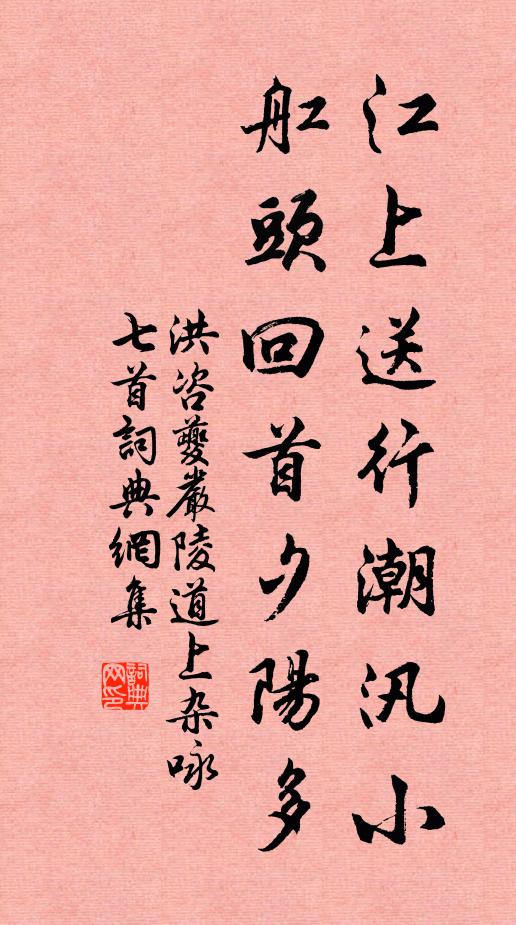 江上送行潮汛小
舡頭回首夕陽多
洪咨夔嚴陵道上杂咏
七首詞典網集
詞典网印